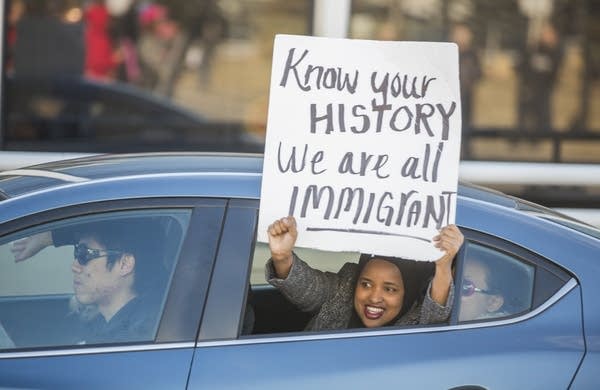 Know your
HISTORY
We are all
IMMIGRANT